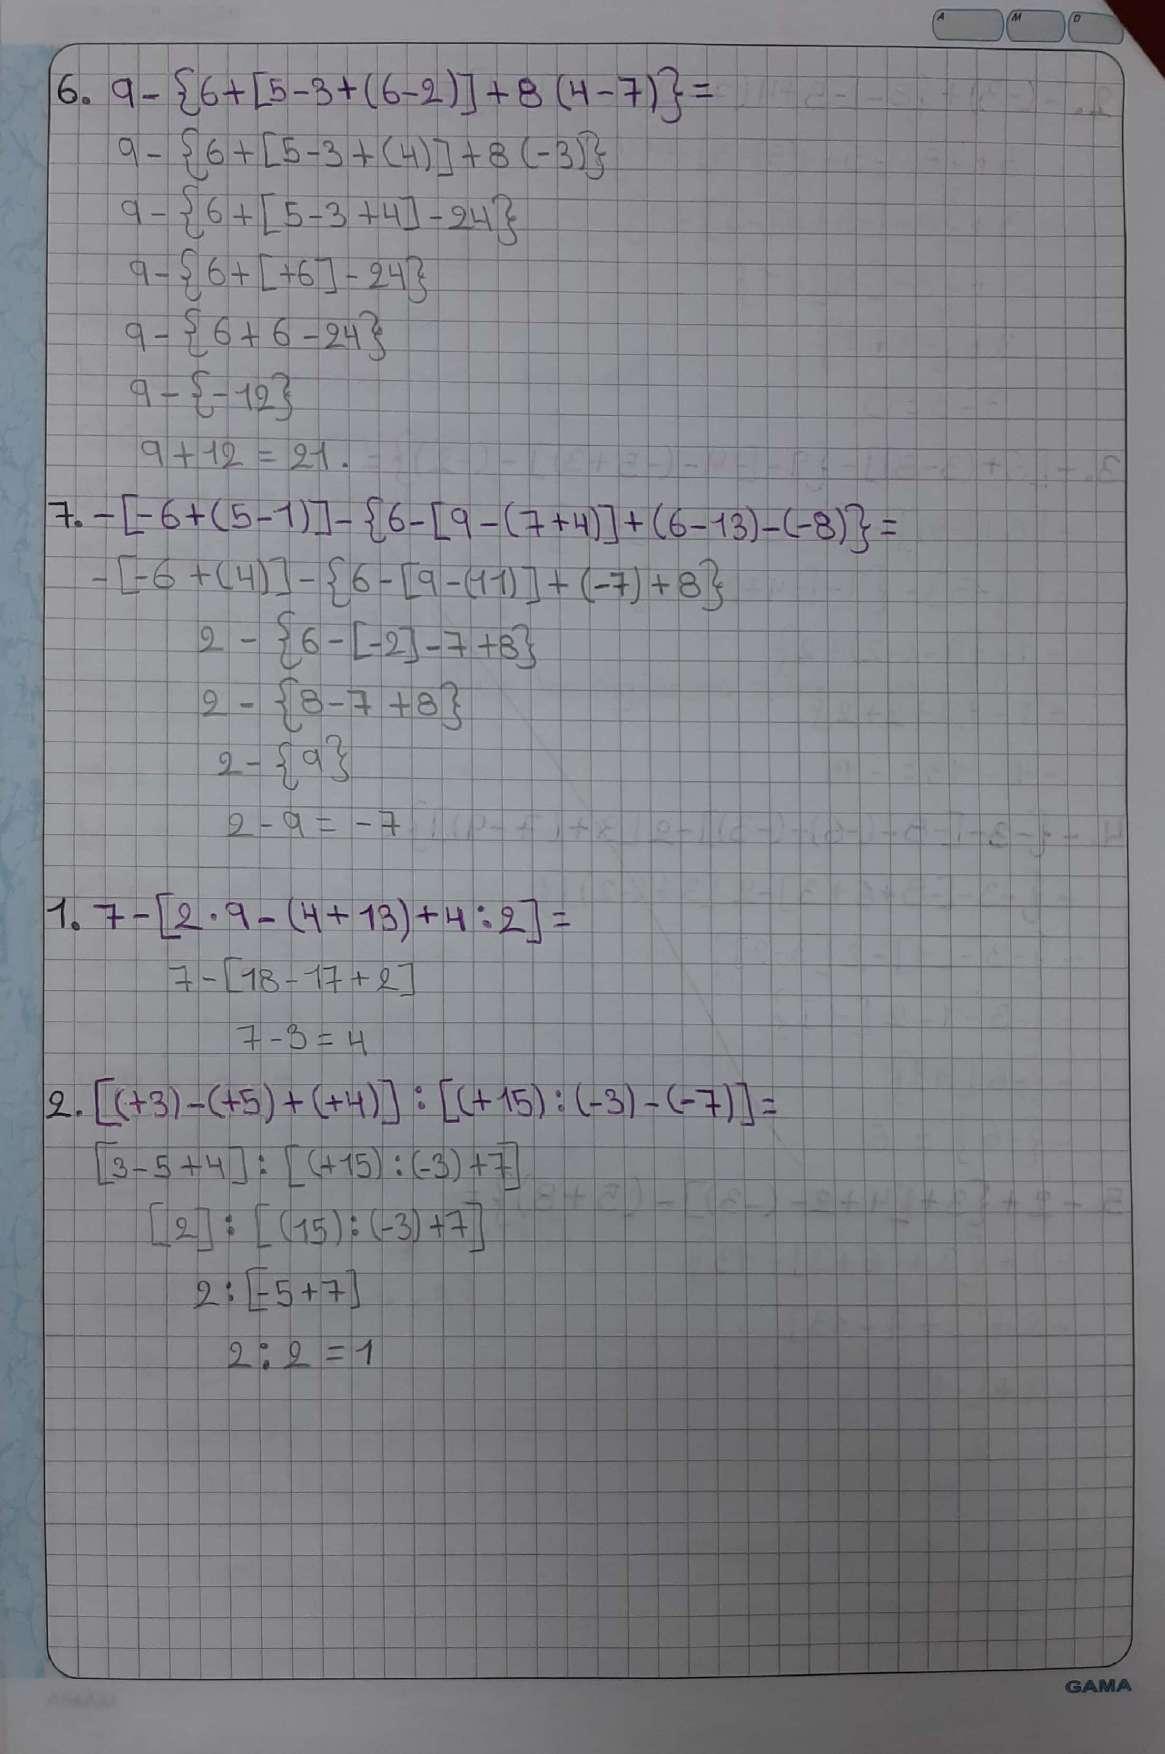 A M D
6. 9-{6+[5-3+(6-2)]+8(4-7)}=
9-{6+[5-3+(4)]+8(-3)}
9-{6+[5-3+4]-24}
9-{6+[+6]-24}
9-{6+6-24}
9-{-12}
9+12=21.
7. -[-6+(5-1)]-{6-[9-(7+4)]+(6-13)-(-8)}=
-[-6+(4)]-{6-[9-(11)]+(-7)+8}
2-{6-[-2]-7+8}
2-{8-7+8}
2-{9}
2-9=-7
1. 7-[2·9-(4+13)+4:2]=
7-[18-17+2]
7-3=4
2. [(+3)-(+5)+(+4)]:[(+15):(-3)-(-7)]=
[3-5+4]:[(+15):(-3)+7]
[2]:[(15):(-3)+7]
2:[-5+7]
2:2=1
GAMA